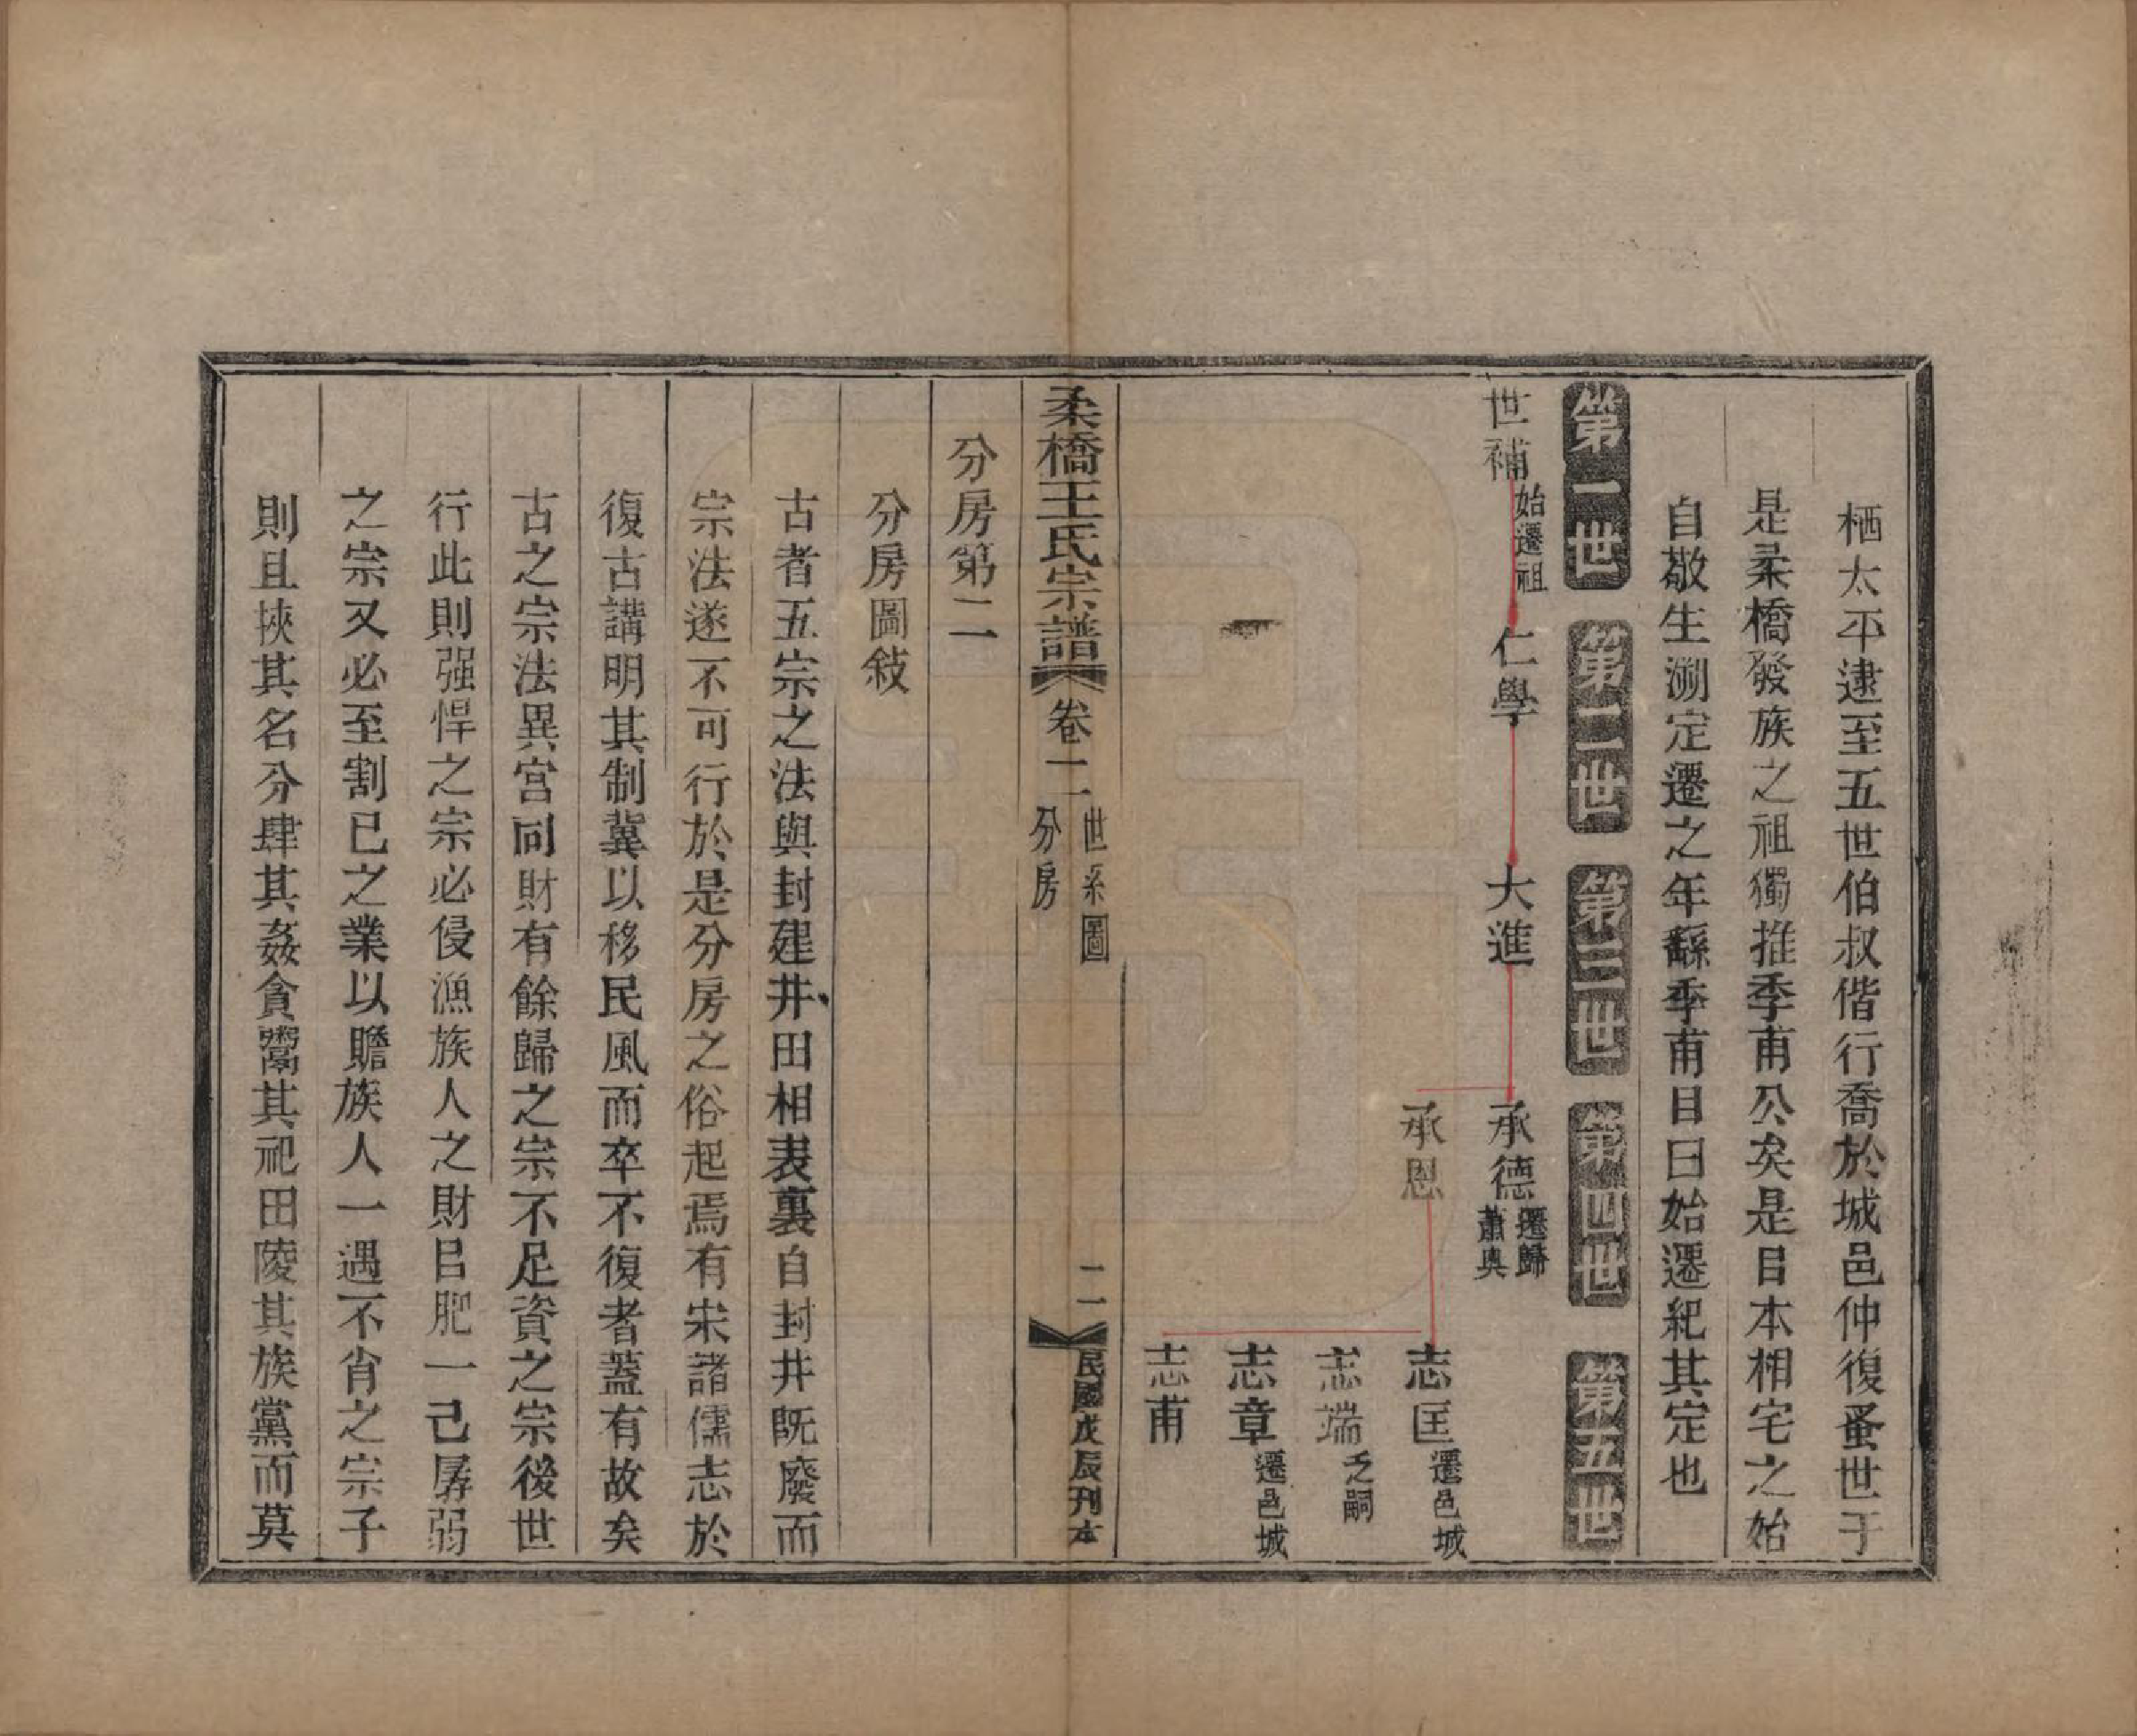 栖太平逮至五世伯叔偕行喬於城邑仲復蚤世于
是柔橋發族之祖獨推季甫公矣是㠯本相宅之始
自敬生溯定遷之年繇季甫㠯曰始遷紀其定也
第一世 第二世 第三世 第四世 第五世
世補 始遷祖 仁學 大進 承德 遷歸蕭奧
承恩 志匡 遷邑城
志端 乏嗣
志章 遷邑城
志甫
柔橋王氏宗譜 卷二 世系圖 分房 二 民國戊辰刊本
分房第二
分房圖敍
古者五宗之法與封建井田相表裏自封井旣廢而
宗法遂不可行於是分房之俗起焉有宋諸儒志於
復古講明其制冀以移民風而卒不復者蓋有故矣
古之宗法異宫同財有餘歸之宗不足資之宗後世
行此則强悍之宗必侵漁族人之財㠯肥一己孱弱
之宗又必至割已之業以贍族人一遇不肖之宗子
則且挾其名分肆其姦貪鬻其祀田陵其族黨而莫